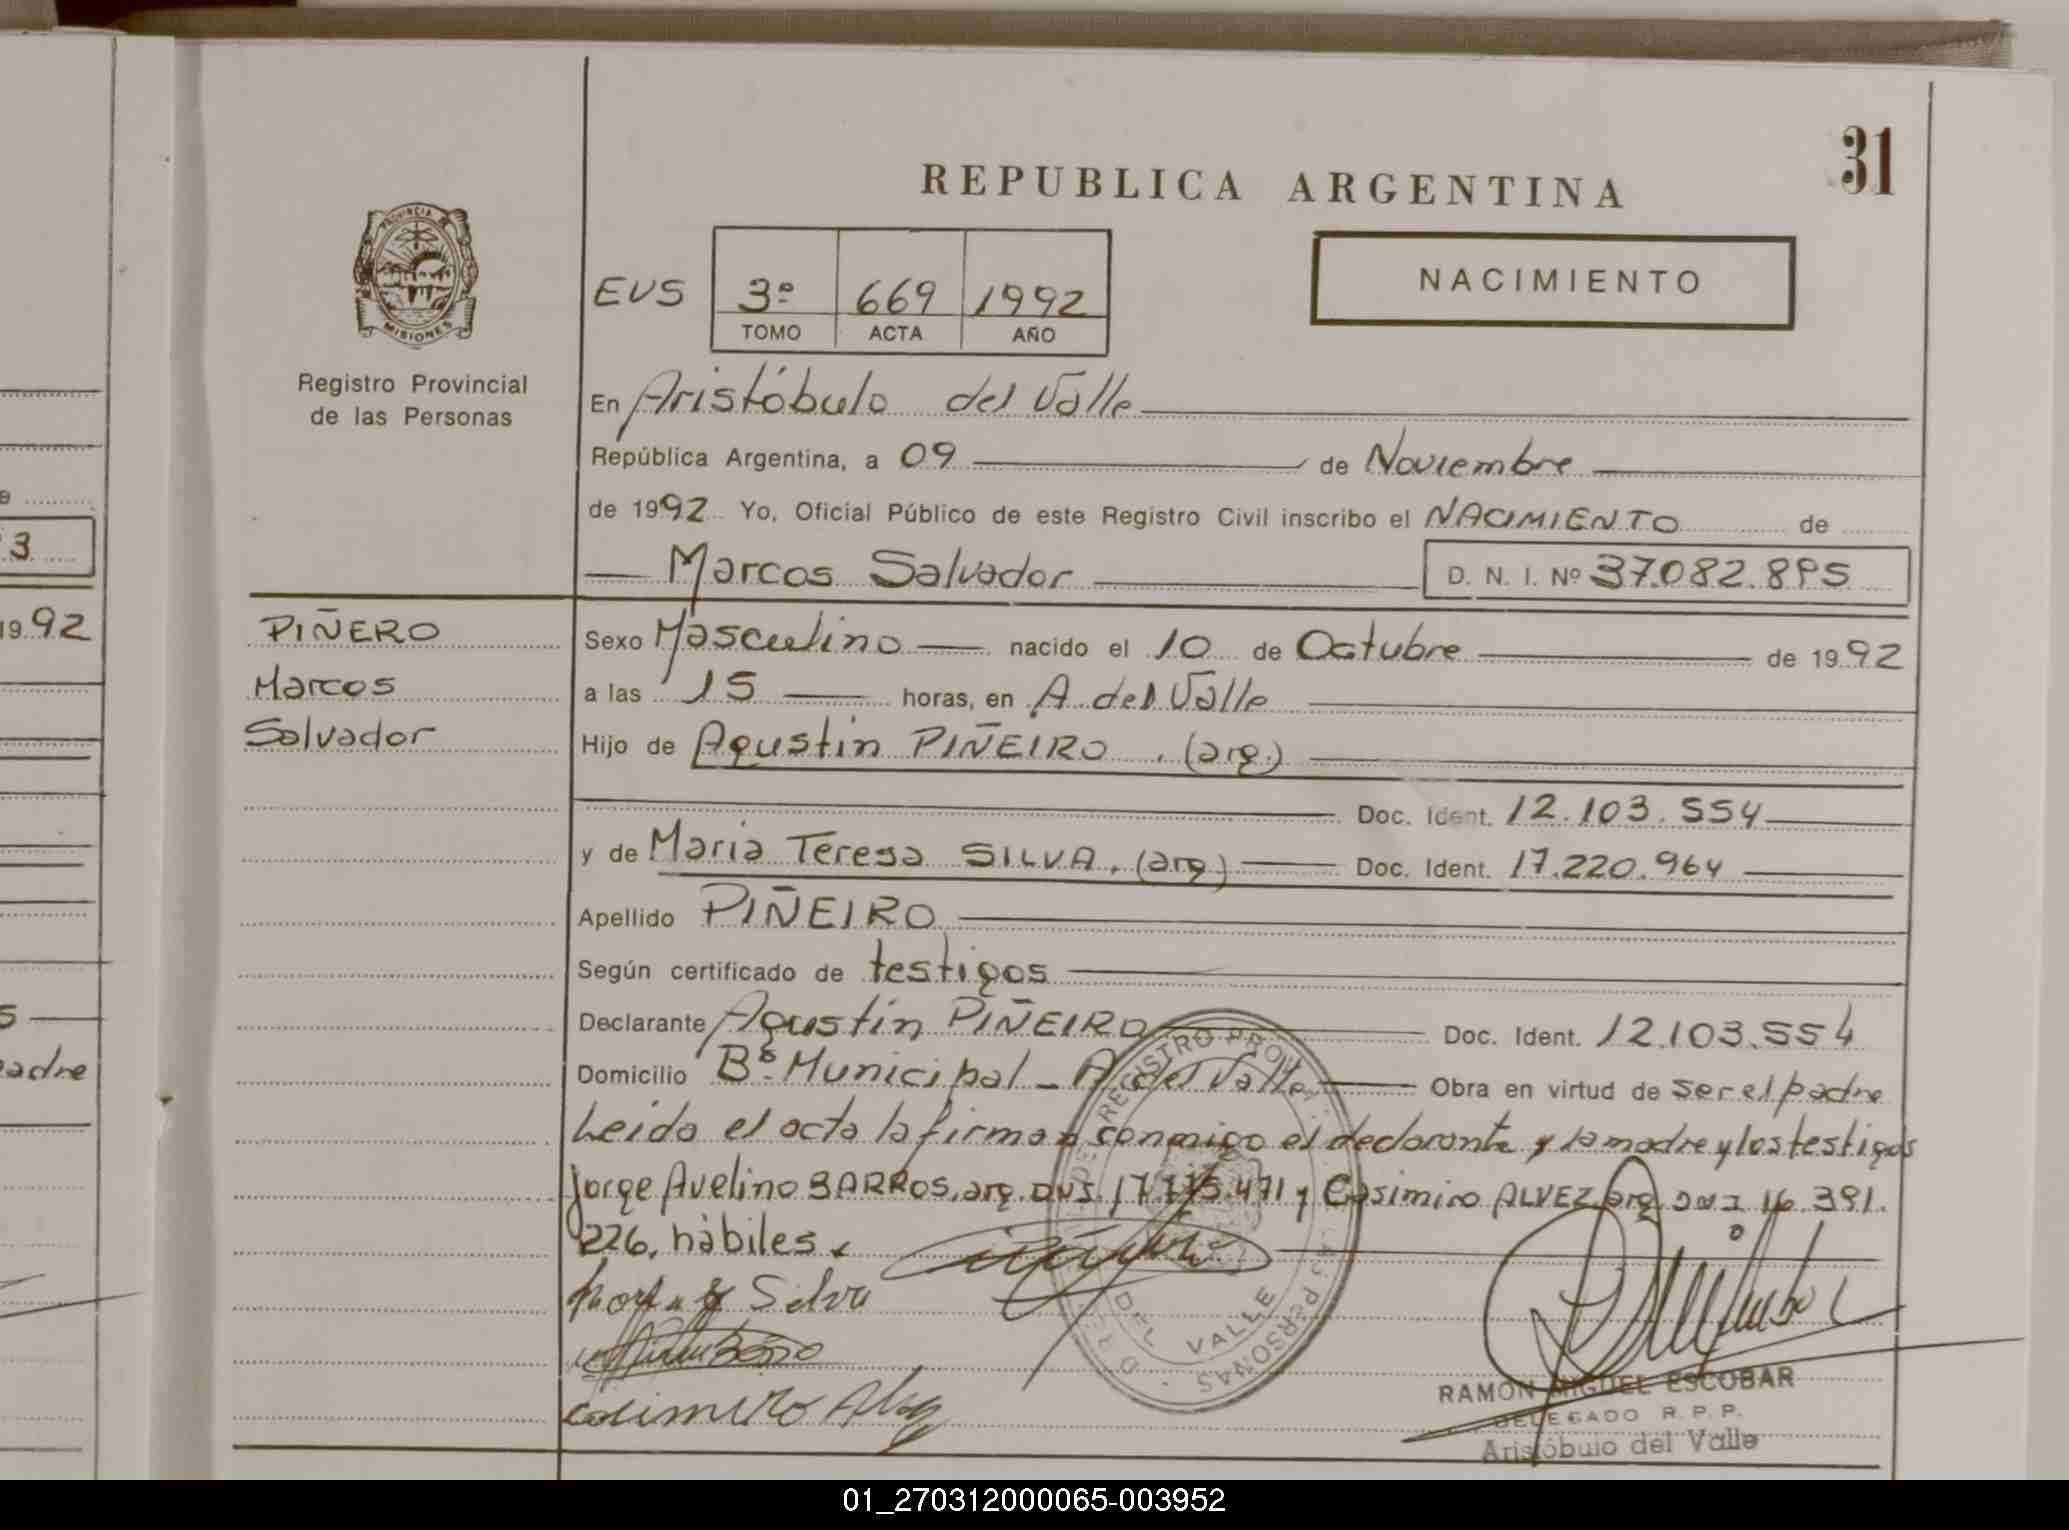 31
REPUBLICA ARGENTINA
PROVINCIA DE
MISIONES
Registro Provincial
de las Personas
EVS 3º 669 1992
TOMO ACTA AÑO
NACIMIENTO
En Aristóbulo del Valle
República Argentina, a 09 de Noviembre
de 1992 Yo, Oficial Público de este Registro Civil inscribo el NACIMIENTO de
Marcos Salvador D. N. I. Nº 37.082.895
PIÑERO
Marcos
Salvador
Sexo Masculino nacido el 10 de Octubre de 1992
a las 15 horas, en A. del Valle
Hijo de Agustín PIÑEIRO. (arg.)
Doc. Ident. 12.103.554
y de Maria Teresa SILVA. (arg) Doc. Ident. 17.220.964
Apellido PIÑEIRO
Según certificado de testigos
Declarante Agustín PIÑEIRO Doc. Ident. 12.103.554
Domicilio Bº Municipal - A. del Valle Obra en virtud de ser el padre
Leida el acta la firman conmigo el declarante y la madre y los testigos
Jorge Avelino BARROS, arg. DNI. 471 y Casimiro ALVEZ arg. DNI 16.391.
226, hàbiles.
Silva
RAMON MIGUEL ESCOBAR
DELEGADO R. P. P.
Aristóbulo del Valle
REGISTRO PROV. PERSONAS
DEL VALLE
3
1992
padre
01_270312000065-003952